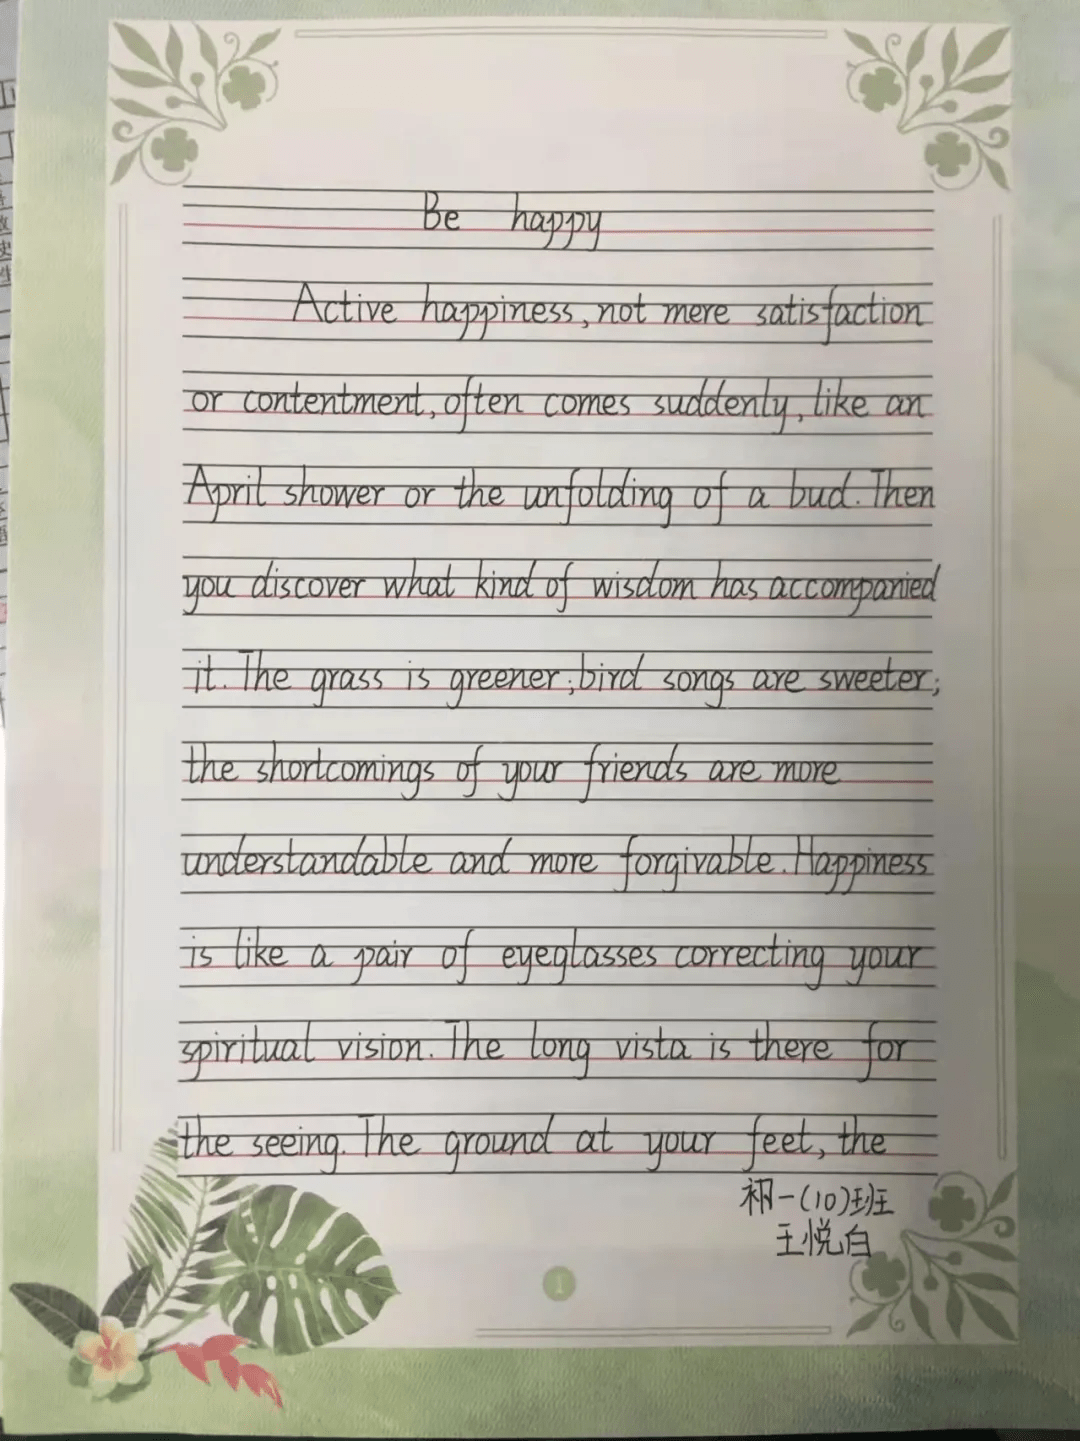 Be happy
Active happiness, not mere satisfaction
or contentment, often comes suddenly, like an
April shower or the unfolding of a bud. Then
you discover what kind of wisdom has accompanied
it. The grass is greener; bird songs are sweeter;
the shortcomings of your friends are more
understandable and more forgivable. Happiness
is like a pair of eyeglasses correcting your
spiritual vision. The long vista is there for
the seeing. The ground at your feet, the
初一(10)班
王悦白
1